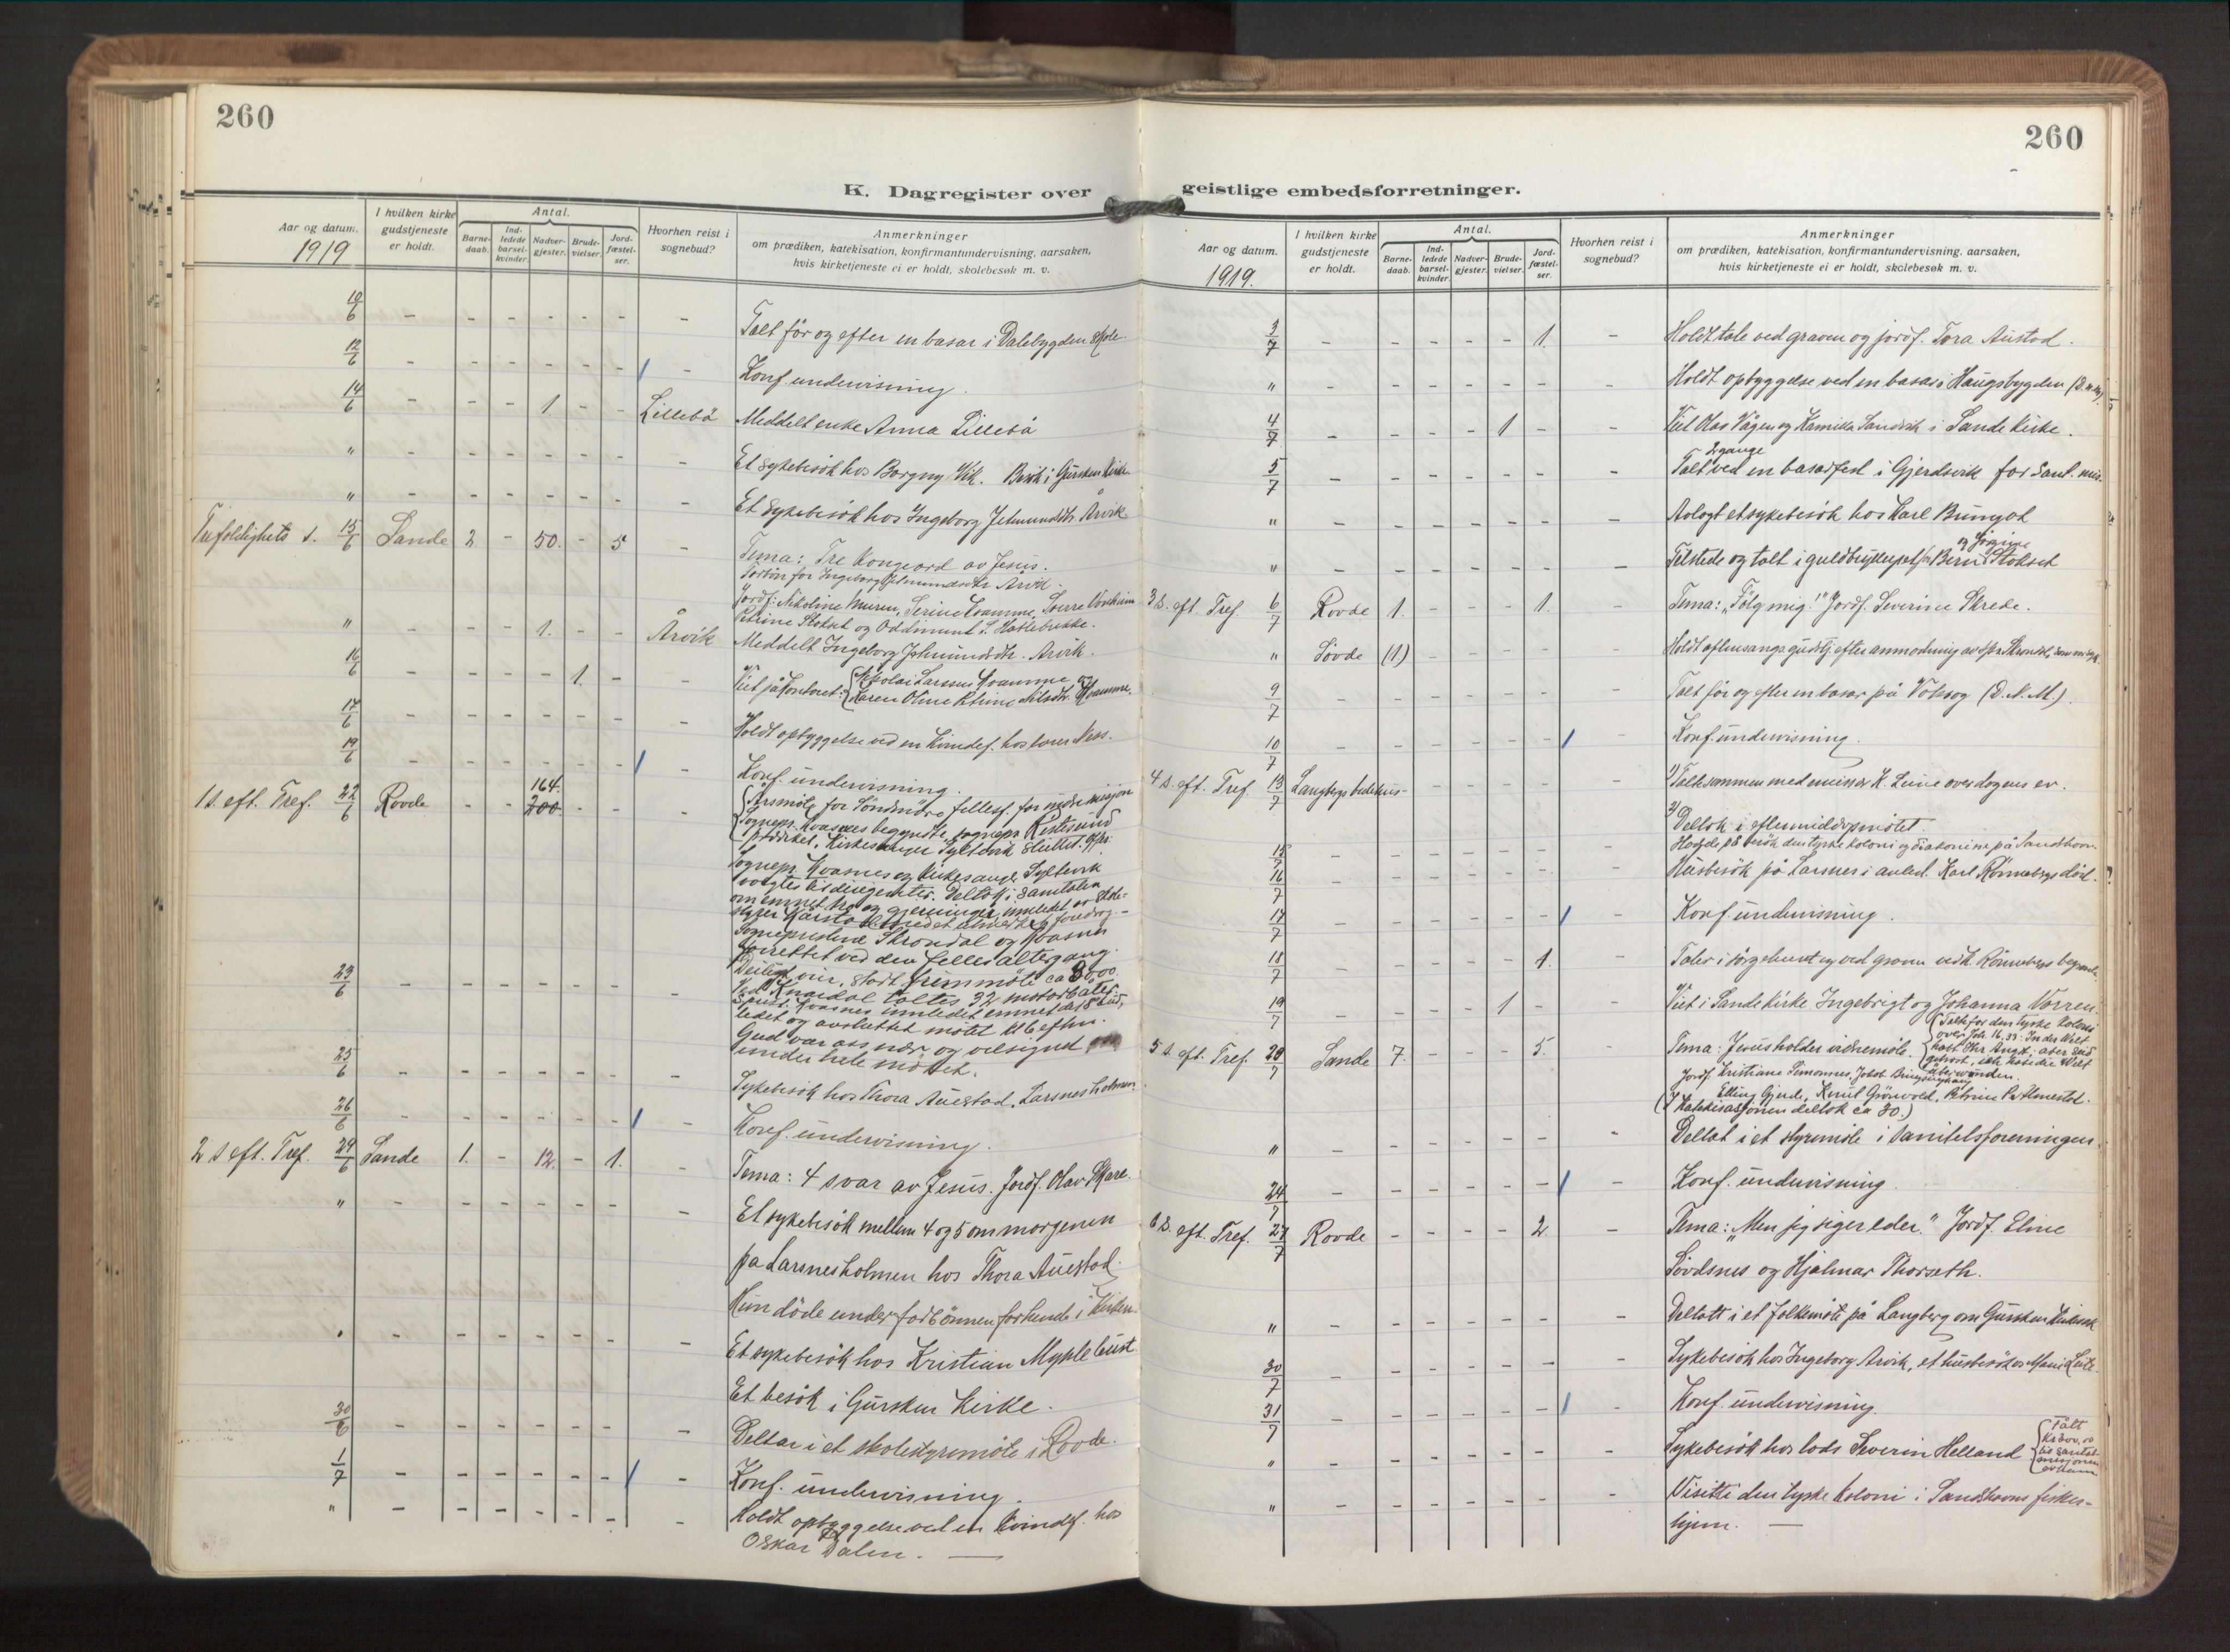 260
K. Dagregister over
Aar og datum.
1919
I hvilken kirke gudstjeneste er holdt.
Antal.
Barne-daab.
Ind-ledede barsel-kvinder.
Nadver-gjester.
Brude-vielser.
Jord-fæstel-ser.
Hvorhen reist i sognebud?
Anmerkninger
om prædiken, katekisation, konfirmantundervisning, aarsaken,
hvis kirketjeneste ei er holdt, skolebesøk m. v.
10/6 - - - - - - - Talt før og efter en basar i Dalebygden skole
12/6 - - - - - - - Konf. undervisning.
14/6 - - - 1 - - Lillebø Meddelt enke Anna Lillebø
" - - - - - - - Et sykebesøk hos Borgny Vik. Besøk i Gursken Kirke
" - - - - - - - Et sykebesøk hos Ingeborg Jetmundsdtr. Årvik
Trefoldighets s. 15/6 Sande 2 - 50. - 5 - Tema: Tre Kongeord av Jesus.
Forbøn for Ingeborg Jetmundsdtr Årvik.
Jordf: Nikoline Muren, Serine Kvamme,
Petrine Stokset og Oddmund S.
" - - - 1. - - Årvik Meddelt Ingeborg Jetmundsdtr. Årvik.
16/6 - - - - 1. - - Viet på Kontoret: Nikolai Larssen Kvamme og
Karen Oline Petrine Nilsdtr. Kvamme.
17/6 - - - - - - - Holdt opbyggelse ved en Kvindef. hos Ness.
19/6 - - - - - - - Konf. undervisning.
1 s. eft. Tref. 22/6 Rovde - - 164. 200. - - - Årsmøte for Søndmøre fellesf. for indremisjon
Sognepr. Kvasnes begyndte, sognepr. Riste
prædiket, Kirkesanger Syltevik sluttet.
Sognepr. Kvasnes og kirkesanger Syltevik
valgtes til dirigenter. Deltok i samtalen
om emnet tro og gjerninger, innledet av
foredrag.
Sogneprestene Skrondal og Kvasnes
forrettet ved den felles altergang.
23/6 - - - - - - - Deilig veir, stort frimmøte ca 3000.
Ved Knardal taltes 32 motorbåter.
Kvasnes innledet emnet
ledet og avsluttet møtet kl 6 eftm.
Gud var oss nær og velsignet
under hele møtet.
25/6 - - - - - - - Sykebesøk hos Thora Auestad, Larsnesholmen
26/6 - - - - - - - Konf. undervisning.
2 s eft. Tref. 29/6 Sande 1. - 12. - 1. - Tema: 4 svar av Jesus. Jordf. Olav Skare.
" - - - - - - - Et sykebesøk mellem 4 og 5 om morgenen
på Larsnesholmen hos Thora Auestad.
Hun døde under forbønnen for hende i Kirken.
- - - - - - - Et sykebesøk hos Kristian Myklebust
Et besøk i Gursken Kirke.
30/6 - - - - - - - Deltar i et skolestyremøte i Rovde.
1/7 - - - - - - - Konf. undervisning.
" - - - - - - - Holdt opbyggelse ved en Kvindef. hos
Oskar Dalen. —
260
geistlige embedsforretninger.
Aar og datum.
1919.
I hvilken kirke gudstjeneste er holdt.
Antal.
Barne-daab.
Ind-ledede barsel-kvinder.
Nadver-gjester.
Brude-vielser.
Jord-fæstel-ser.
Hvorhen reist i sognebud?
Anmerkninger
om prædiken, katekisation, konfirmantundervisning, aarsaken,
hvis kirketjeneste ei er holdt, skolebesøk m. v.
3/7 - - - - - 1. - Holdt tale ved graven og jordf. Tora Austad.
" - - - - - - - Holdt opbyggelse ved en basar i Haugsbygden
4/7 - - - - 1 - - Viet Olas Vågen og Kamilla Sandvik i Sande Kirke.
5/7 - - - - - - - Talt 2 gange ved en basarfest i Gjerdsvik for Sant. mis.
" - - - - - - - Avlagt et sykebesøk hos Karl Bringot
" - - - - - - - Tilstede og talt i guldbryllupet Stokset
3 s. eft. Tref. 6/7 Rovde 1. - - - 1. - Tema: „Følg mig!" Jordf. Severine Skrede.
" Søvde (1) - - - - - Holdt aftensangs gudstj. efter anmodning av spr. Skrondal,
9/7 - - - - - - - Talt før og efter en basar på Voksøy (D. N. M.).
10/7 - - - - - - - Konf. undervisning.
4 s. eft. Tref. 13/7 Langbergs bedehus - 1) Talt sammen med emissær K. Leine over dagens ev.
2) Deltok i eftermiddagsmøtet.
15/7 besøk den tyske koloni og diakonisse på Sandshavn
16/7 - - - - - - - Husbesøk på Larsnes i anled. Karl Rønnebergs død.
17/7 - - - - - - - Konf. undervisning.
18/7 - - - - - 1. - Taler i sørgehuset og ved graven ved K. Rønnebergs begravelse
19/7 - - - - 1 - - Viet i Sande Kirke Ingebrigt og Johanna Vorren.
5 s. eft. Tref. 20/7 Sande 7. - - - 5. - Tema: Jesus holder vidnemøte. Talt for den tyske koloni
over Joh. 16, 33: In der Welt
habt Ihr Angst; aber seid
getrost, ich habe die Welt
überwunden.
Jordf. Kristiane Simonnes, Jakob
Elling Gjerde, Knut Grønvold, Petrine P. Almestad.
(I Katekisasjonen deltok ca 30.)
" - - - - - - - Deltat i et styremøte i Sanitetsforeningen.
24/7 - - - - - - - Konf. undervisning
6 s. eft. Tref. 27/7 Rovde - - - - 2 - Tema: „Men jeg siger eder." Jordf. Eline
Søvdsnes og Hjalmar Thorseth.
" - - - - - - - Deltatt i et folkemøte på Langberg om Gursken Kirkesak
30/7 - - - - - - - Sykebesøk hos Ingeborg Årvik, et husbesøk
31/7 - - - - - - - Konf. undervisning.
" - - - - - - - Sykebesøk hos lods Severin Helland
" - - - - - - - Visitt i den tyske koloni i Sandshavns fisker-
hjem. —